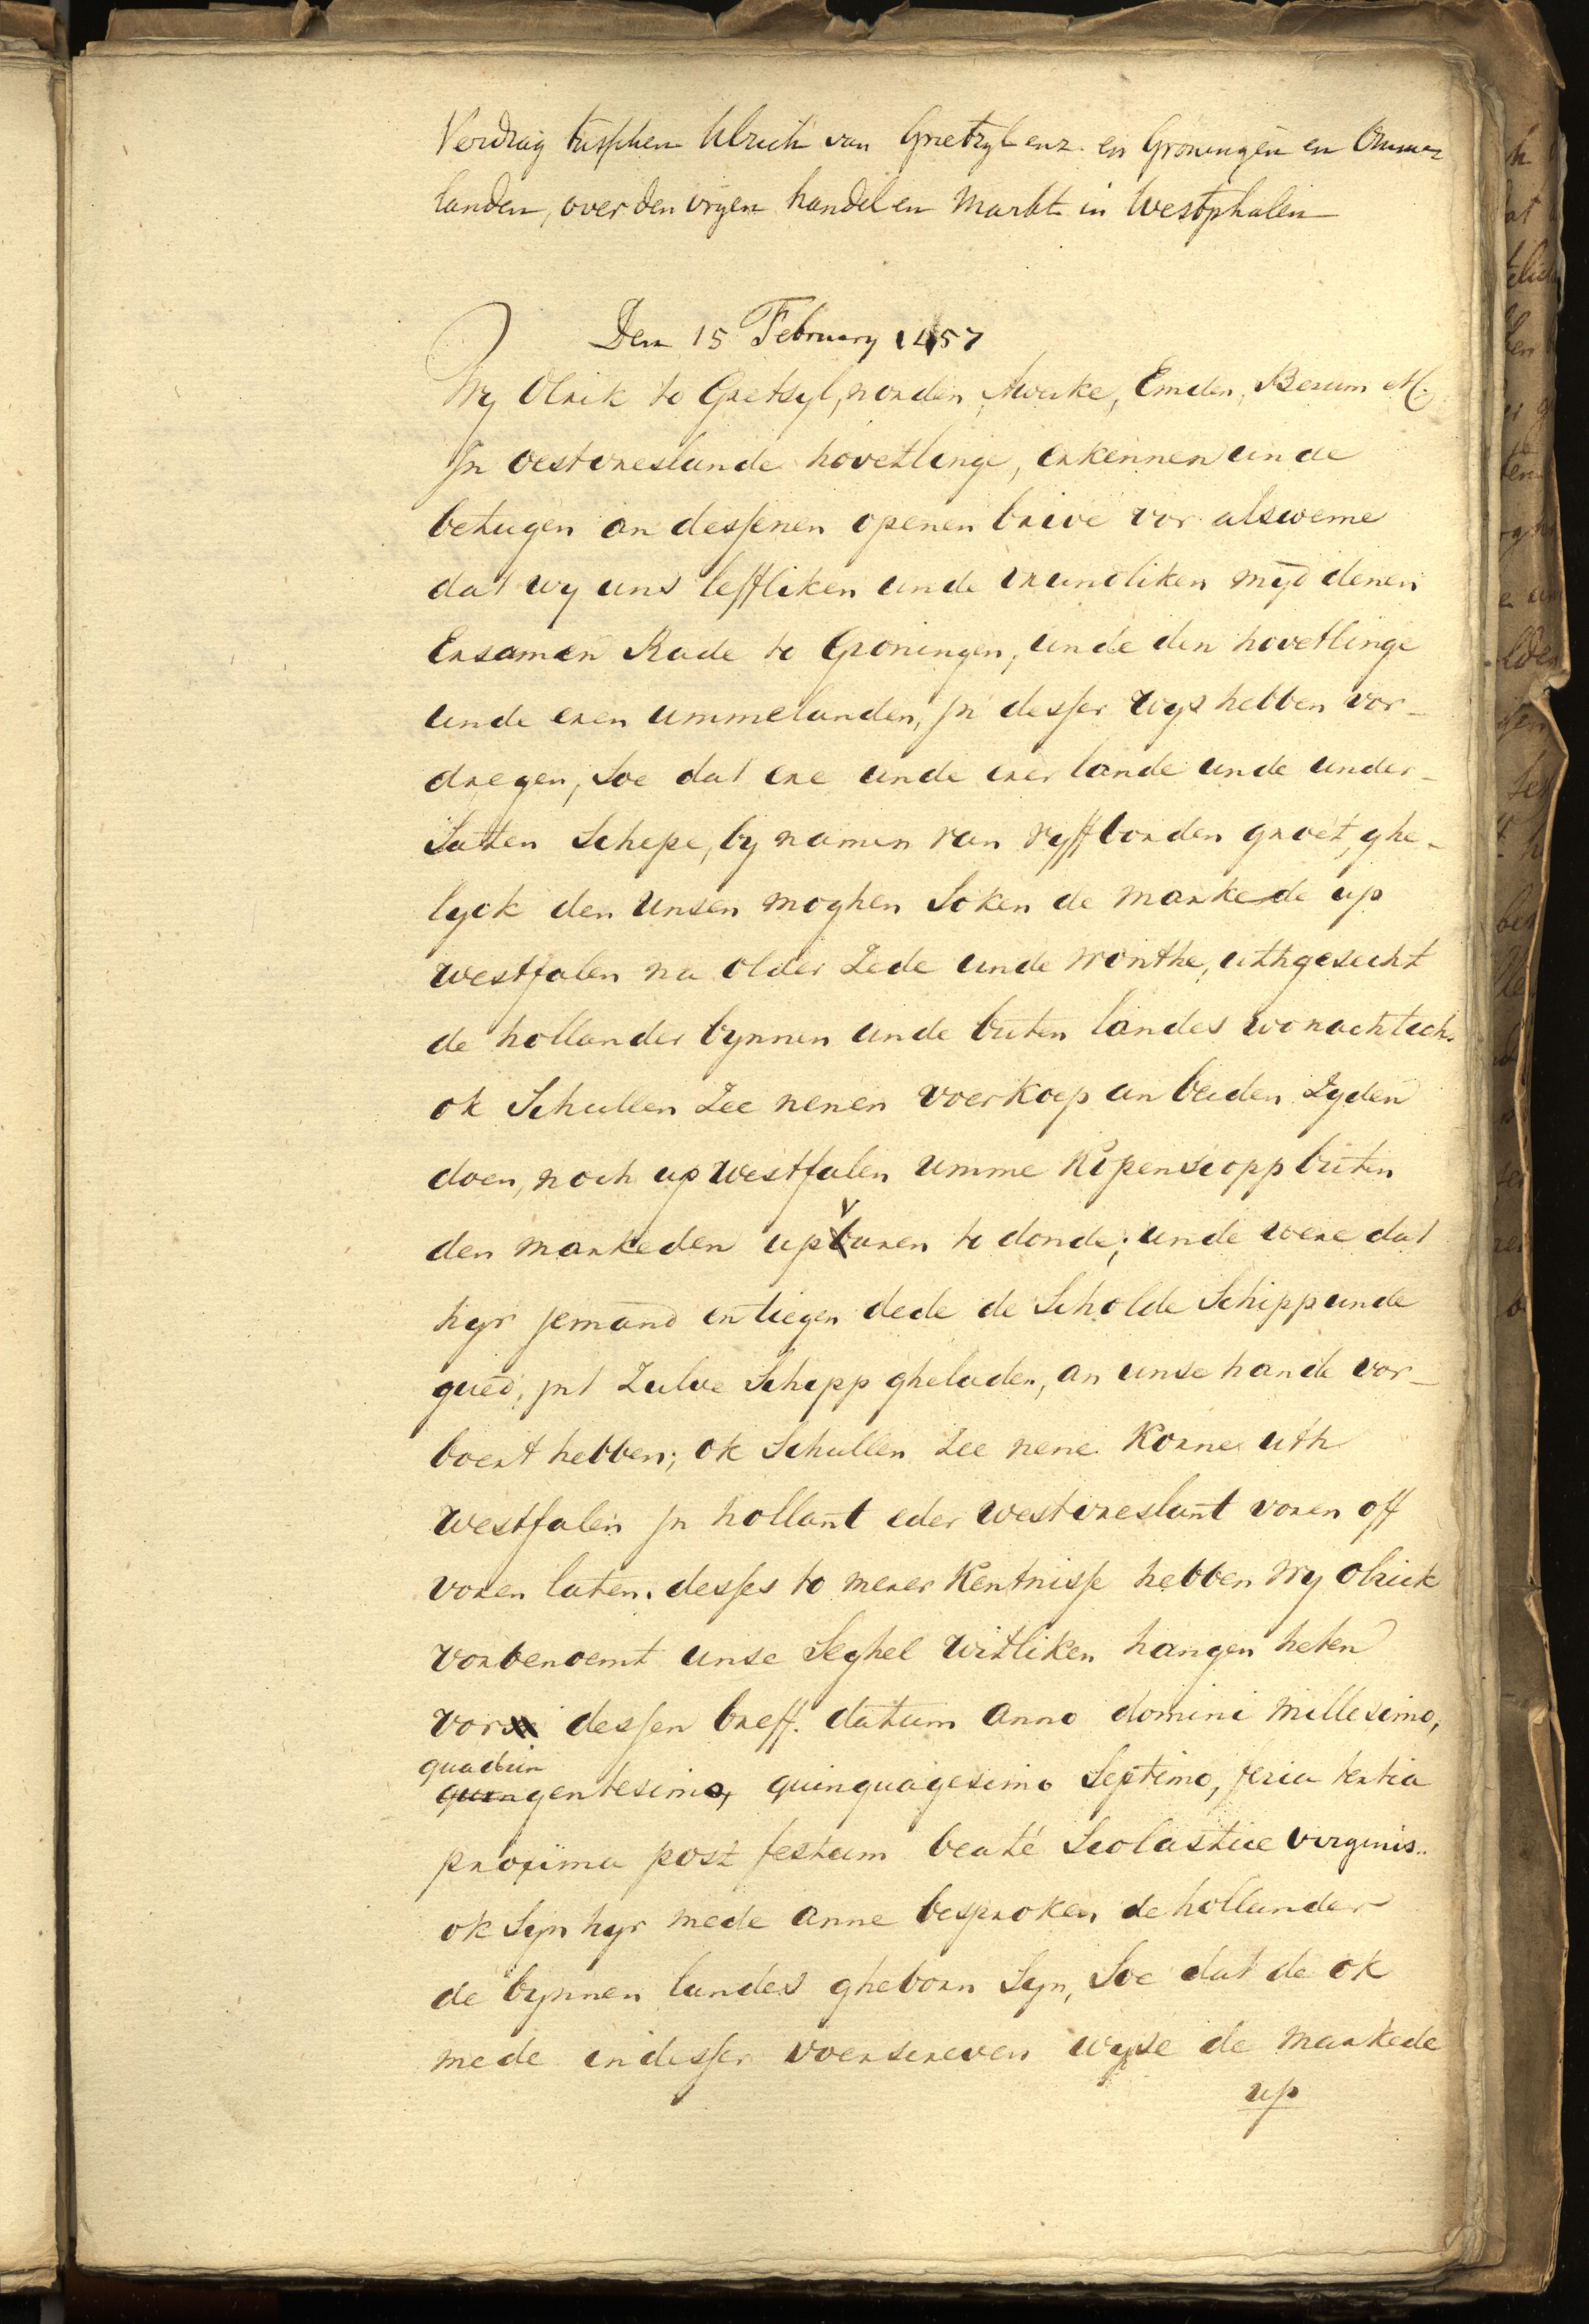 Verdrag tusschen Ulrich van Grietzyl enz. en Groningen en Omme-
landen, over den vryen handel en Markt in Westphalen
Den 15 February 1457
Wy Olrik to Gretsyl, norden, Awerke, Emden, Berum &c.
Jn oestvreslande hovetlinge, erkennen unde
betugen an dessenen openen breve vor alsweme
dat wy uns leffliken unde vrundliken myd denen
Ersamen Rade to Groningen, unde den hovetlinge
unde eren ummelanden, jn desser wys hebben vor-
dregen, Soe dat ere unde erer lande unde under-
Saten Schepe, by namen van vyff borden groet, ghe-
lyck den unsen moghen Soken de markede up
westfalen na older Zede unde wonthe, uthgesecht
de hollander bynnen unde buten landes wonachtich.
ok Schullen Zee nenen voerkoep an beiden Zyden
doen, noch up westfalen umme Kopenscopp buten
den markeden up varen to donde; unde were dat
hyr jemand entiegen dede de Scholde Schipp unde
gued, jnt Zulve Schipp gheladen, an unse hande vor-
boert hebben; ok Schullen Zee nene Korne uth
westfalen jn hollant eder westvreslant voren off
voren laten. desses to merer Kentnisse hebben wy olrick
vorbenoemt unse Seghel witliken hangen heten
vor dessen breff. datum anno domini millesimo,
quadrin
quingentesimo, quinquagesimo Septimo, feria tertia
proxima post festum beate Scolastice virginis..
ok Syn hyr mede anne besproken de hollander
de bynnen landes gheborn Syn, Soe dat de ok
mede in desser voerscreven wyse de markede
up